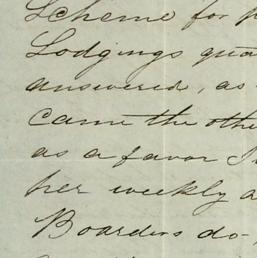 Scheme for
Lodgings
answered, as
Came the othe
as a favor I
her weekly a
Boarders do-